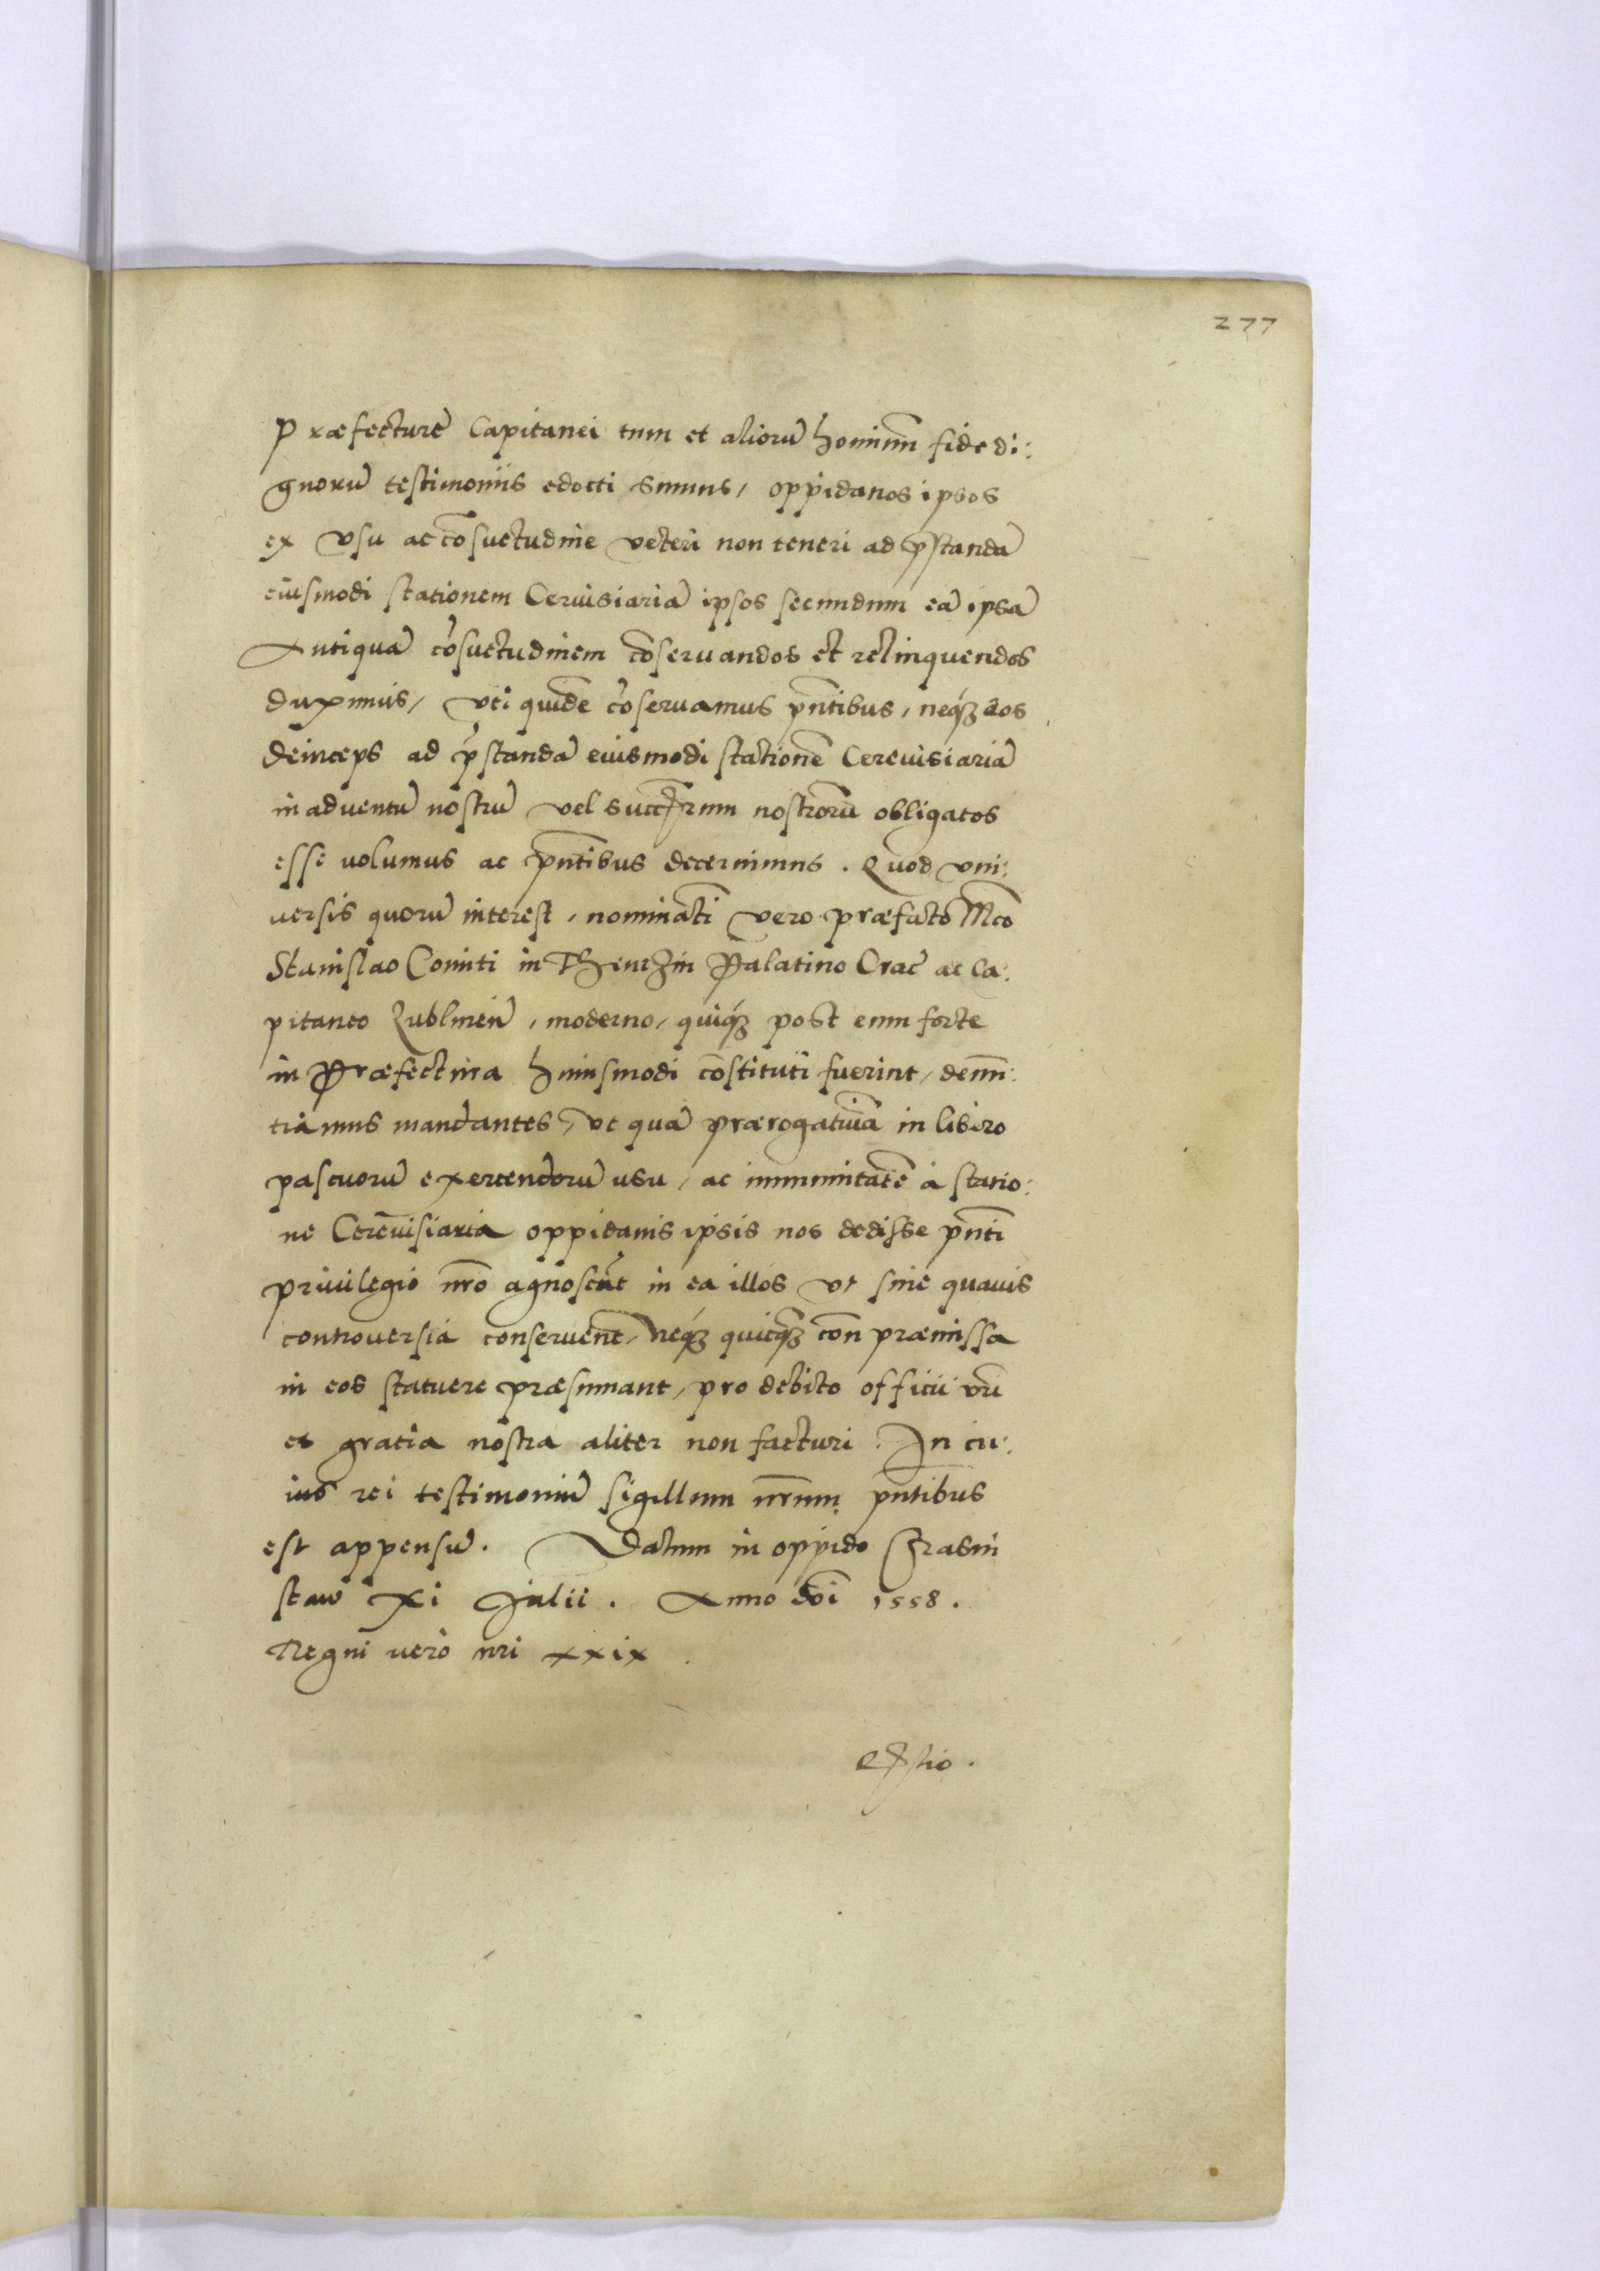 277
Præfecturę Capitanei tum et aliorū hominum̄ fide di:
gnorū testimoniis edocti sumus, oppidanos ipsos
ex vsu ac cōsuetudine veteri non teneri ad p̄standā
eiusmodi stationem Ceruisiariā ipsos secundum eā ipsā
Antiquā cōsuetudinem cōseruandos et relinquendos
duximus, vti quidē cōseruamus pn̄tibus, neq₃ eos
deinceps ad p̄standā eiusmodi stationē Cereuisiariā
in aduentū nostrū vel succ̄rum nostrorū obligatos
esse uolumus ac pn̄tibus decernimus. Quod vni:
uersis quorū interest, nominatī vero præfacto Mco̅
Stanislao Comiti in Thenczin Palatino Crac̄ ac Ca:
pitaneo Lublineñ, moderno, quiq₃ post eum forte
in Præfectura huiusmodi cōstituti fuerint, denun̄:
tiamus mandantes, vt quā prærogatiuā in libero
pascuorū exercendorū usu, ac immunitatē à statio:
ne Cereuisiaria oppidanis ipsis nos dedisse pn̄ti
priuilegio nr̄o agnoscāt in ea illos vt sine quauis
controuersia conseruent, Neq₃ quicq₃ con̄ præmissa
in eos statuere præsumant, pro debito officii vr̄i
et gratia nostra aliter non facturi. In cu:
ius rei testimoniū sigillum nr̄um pn̄tibus
est appensū. Datum in oppido Crasni
staw XI Julii. Anno dn̄i 1558.
Regni vero nr̄i xxix